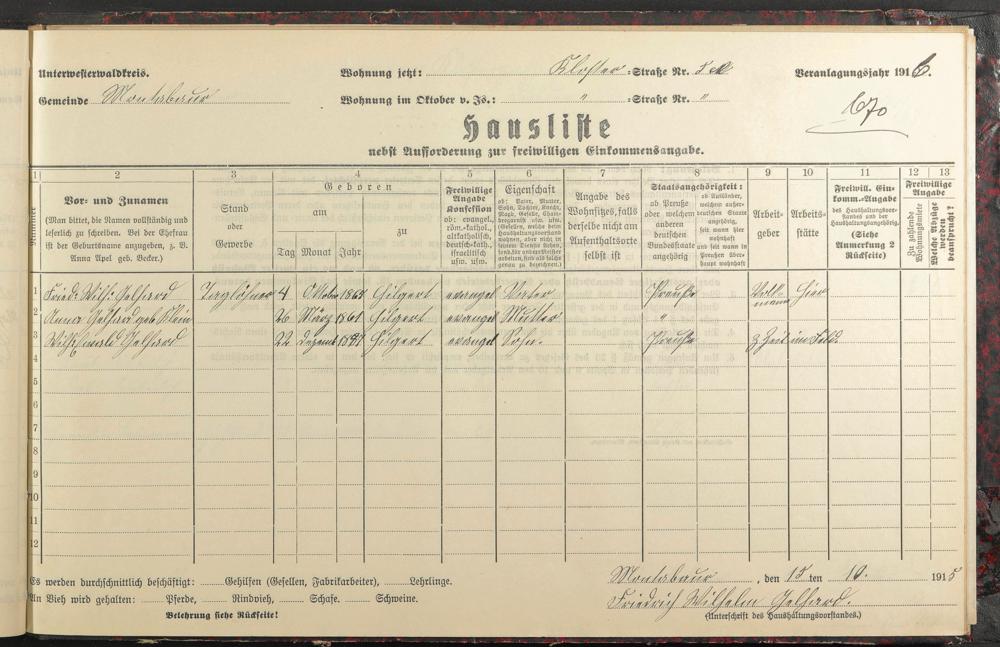 Unterwesterwaldkreis.
Wohnung jetzt: Kloster-Straße Nr.
Veranlagungsjahr 1916.
Gemeinde Montabaur
Wohnung im Oktober v. Js.: " -Straße Nr. "
670
Hausliste
nebst Aufforderung zur freiwilligen Einkommensangabe.
1 2 3 4 5 6 7 8 9 10 11 12 13
Nummer
Vor- und Zunamen
(Man bittet, die Namen vollständig und
leserlich zu schreiben. Bei der Ehefrau
ist der Geburtsname anzugeben, z. B.
Anna Apel geb. Becker.)
Stand
oder
Gewerbe
Geboren
am
zu
Tag Monat Jahr
Freiwillige
Angabe
Konfession
ob: evangel.,
röm.-kathol.,
altkatholisch,
deutsch-kath.,
israelitisch
usw. usw.
Eigenschaft
ob: Vater, Mutter,
Sohn, Tochter, Knecht,
Magd, Geselle, Cham-
bregarnist usw. usw.
(Gesellen, welche beim
Haushaltungsvorstand
wohnen, aber nicht in
seinem Dienste stehen,
sondern anderweitig
arbeiten, sind als solche
genau zu bezeichnen.)
Angabe des
Wohnsitzes, falls
derselbe nicht am
Aufenthaltsorte
selbst ist
Staatsangehörigkeit:
ob Preuße
oder welchem
anderen
deutschen
Bundesstaate
angehörig
ob Ausländer,
welchem außer-
deutschen Staate
angehörig,
seit wann hier
wohnhaft
und seit wann in
Preußen über-
haupt wohnhaft
Arbeit-
geber
Arbeits-
stätte
Freiwill. Ein-
komm.-Angabe
des Haushaltungsvor-
standes und der
Haushaltungsangehörig.
(Siehe
Anmerkung 2
Rückseite)
Freiwillige
Angabe
Zu zahlende
Wohnungsmiete
Welche Abzüge
werden
beansprucht?
1 Fried. Wilh. Gelhard Taglöhner 4 Oktober 1865 Hilgert evangel Vater Preuße hier
2 Anna Gelhard geb. Klein 26 März 1861 Hilgert evangel Mutter "
3 Gelhard 22 Dezemb Hilgert evangel Sohn. Preuße z Zeit im Feld.
4
5
6
7
8
9
10
11
12
Es werden durchschnittlich beschäftigt: Gehilfen (Gesellen, Fabrikarbeiter), Lehrlinge.
Montabaur, den 15ten 10. 1915
An Vieh wird gehalten: Pferde, Rindvieh, Schafe. Schweine.
Friedrich Wilhelm Gelhard.
Belehrung siehe Rückseite!
(Unterschrift des Haushaltungsvorstandes.)